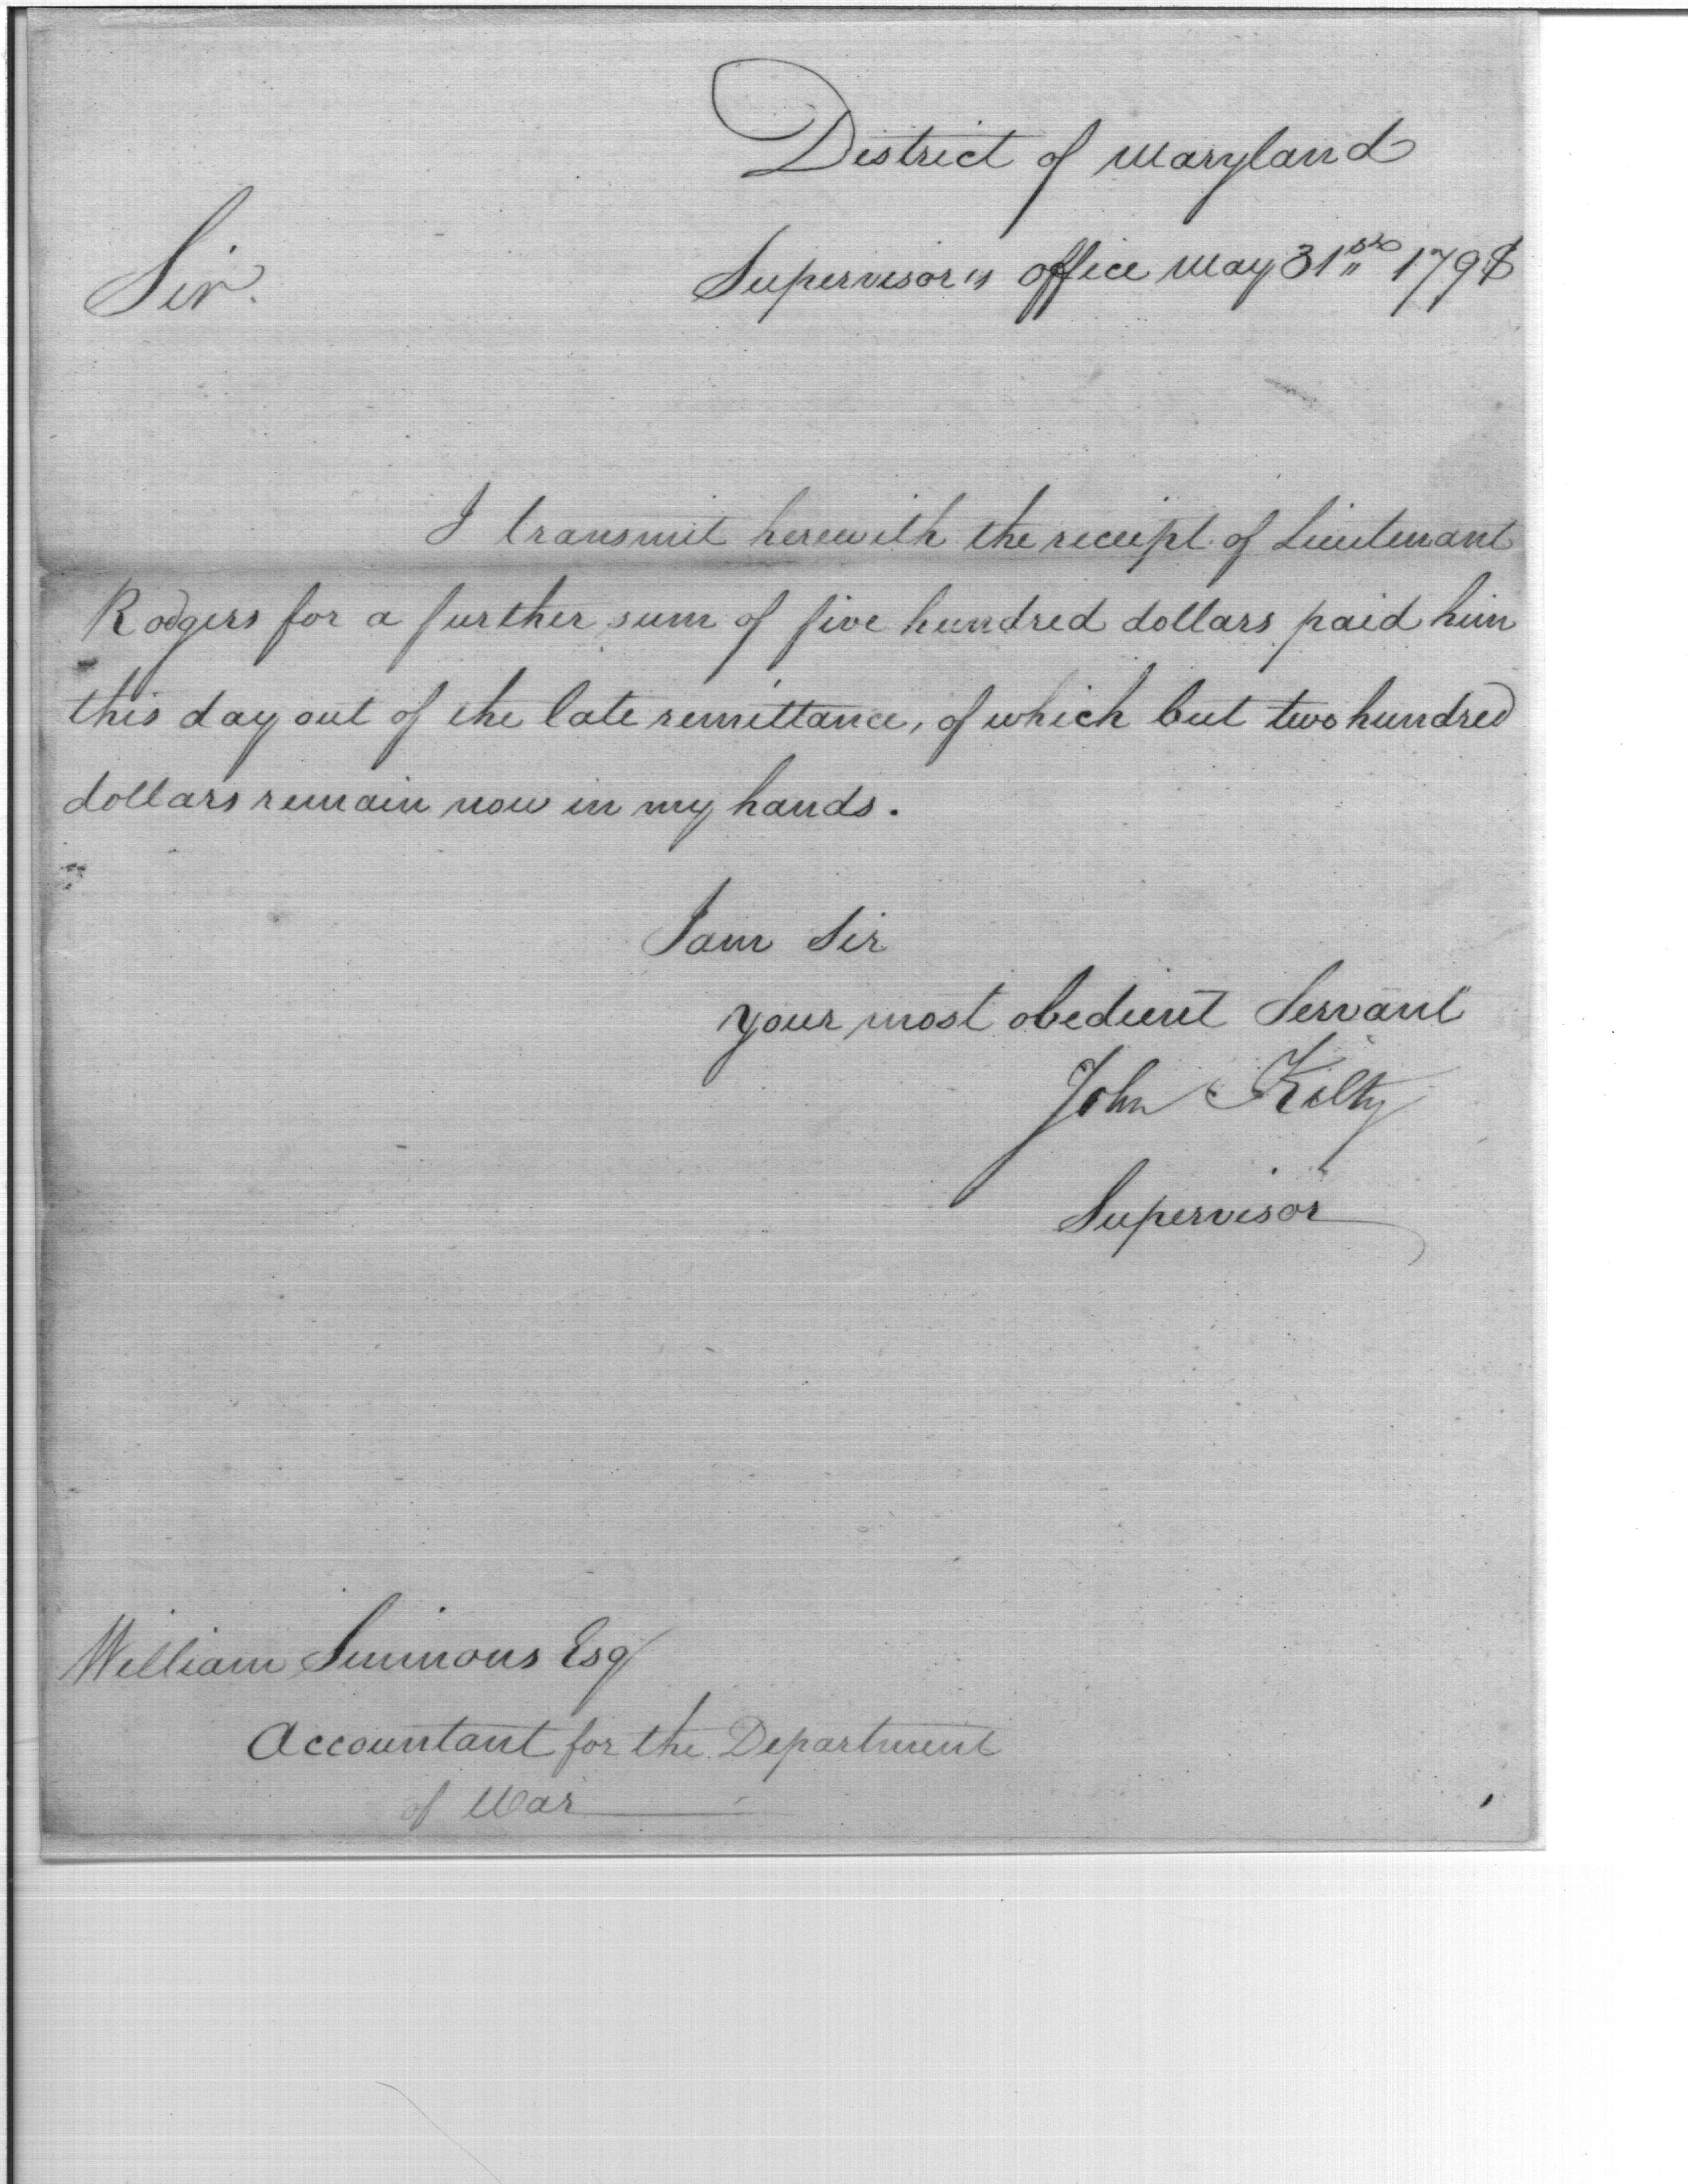 District of Maryland
Sir.
Supervisor's office May 31st 1798
I transmit herewith the receipt of Lieutenant
Rodgers for a further sum of five hundred dollars paid him
this day out of the late remittance, of which but two hundred
dollars remain now in my hands.
I am Sir
your most obedient Servant
John Kilty
Supervisor
William Simmons Esq
Accountant for the Department
of War